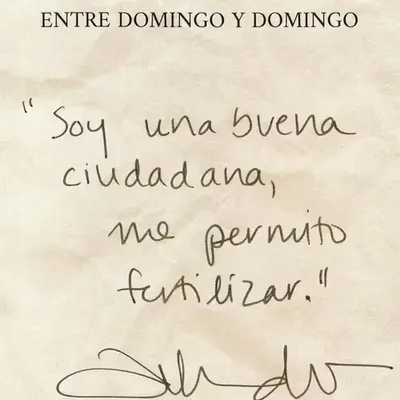 ENTRE DOMINGO Y DOMINGO
"Soy una buena
ciudadana,
me permito
fertilizar."